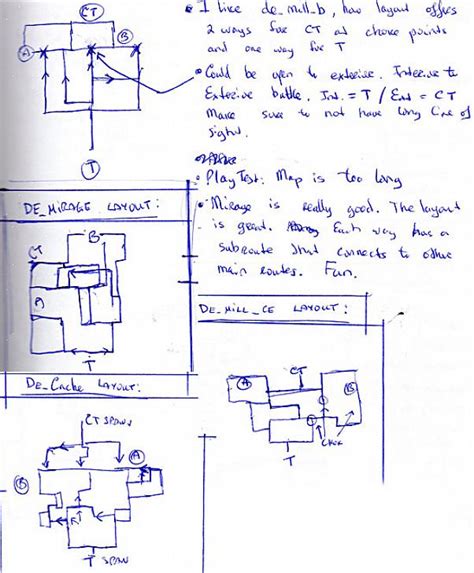 CT
A
B
T
• I like de_mill_b, how layout offers
2 ways for CT at choke points
and one way for T
• Could be open to exterior. Interior to
Exterior battle. Int. = T / Ext = CT
Make sure to not have long line of
sight.
• PlayTest: Map is too long
• Mirage is really good. The layout
is great. Each way has a
subroute that connects to other
main routes. Fun.
DE_MIRAGE LAYOUT:
B
CT
A
T
DE_MILL_CE LAYOUT:
CT
A
B
T
DE_Cache LAYOUT:
CT SPAWN
A
B
T SPAWN